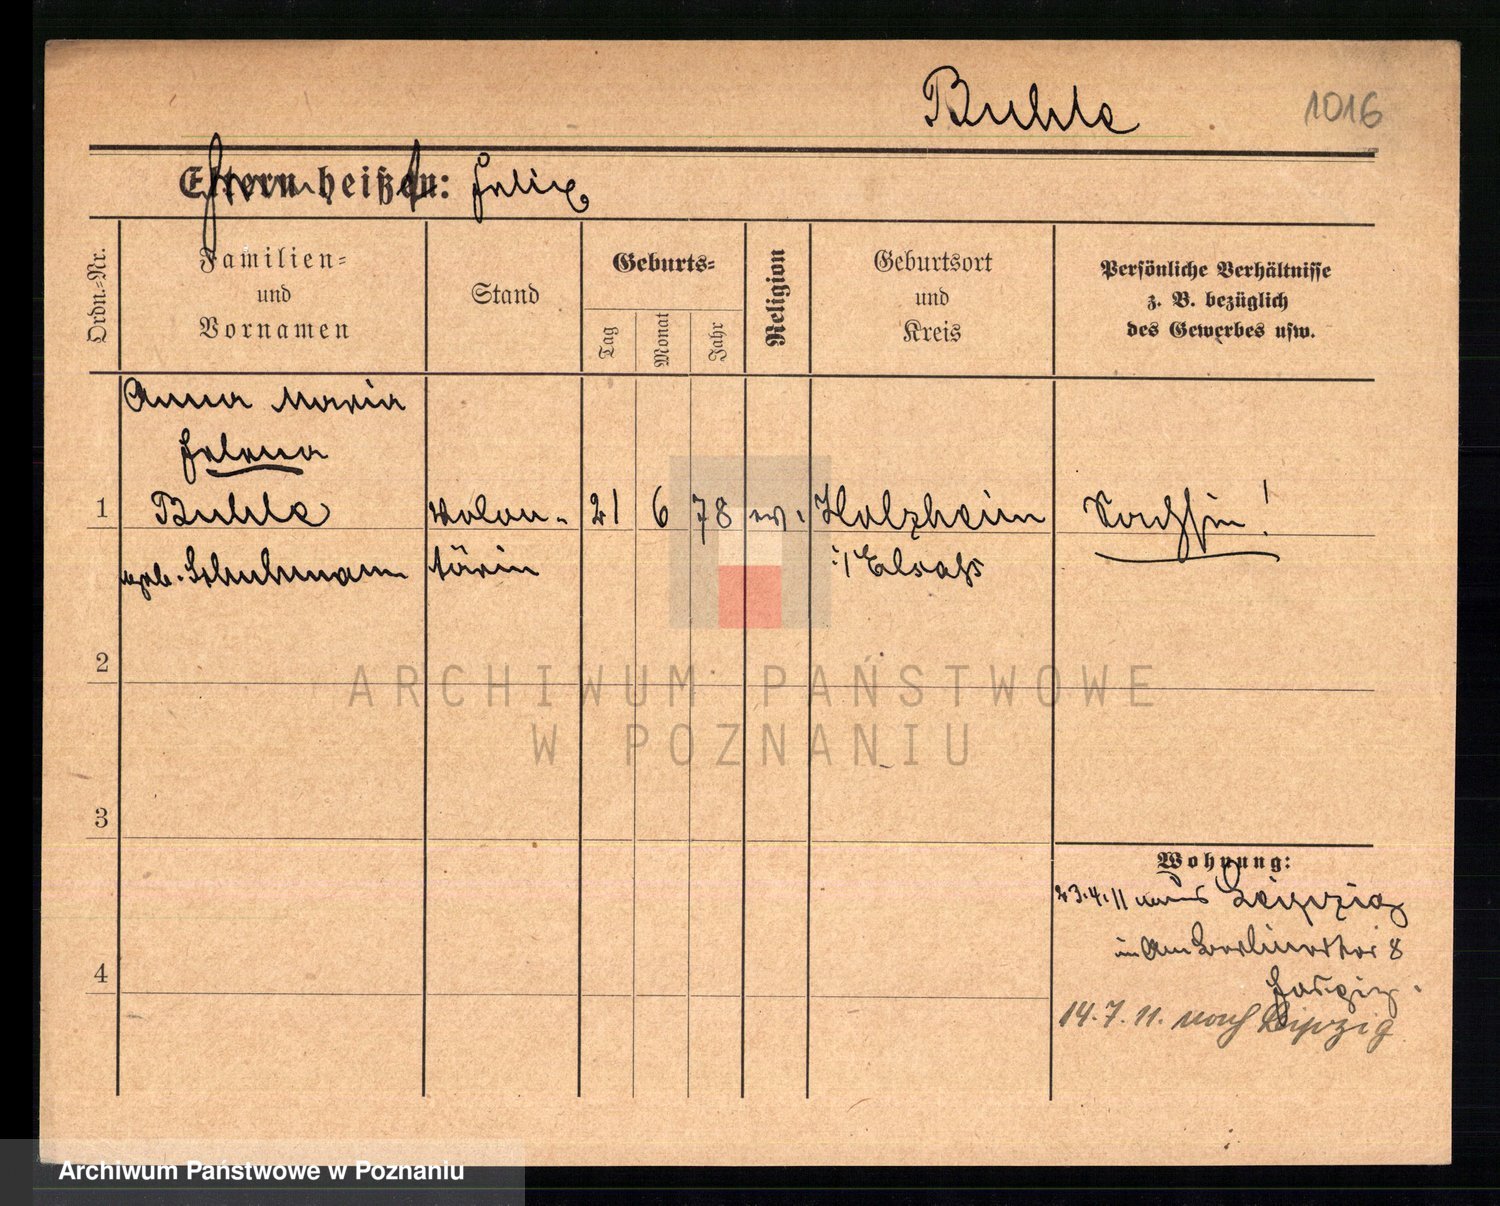 Buhle
1016
Eltern heißen: Felix
Ordn.-Nr.
Familien-
und
Vornamen
Stand
Geburts-
Tag
Monat
Jahr
Religion
Geburtsort
und
Kreis
Persönliche Verhältnisse
z. B. bezüglich
des Gewerbes usw.
Anna Maria
Helena
1 Buhle Volon- 21 6 78 ev. Holzheim Sachsin!
geb. Schuhmann tärin i/ Elsaß
2
3
4
Wohnung:
23.4.11 aus Leipzig
in Am Berlinertor 8
14.7.11. nach Leipzig
ARCHIWUM PAŃSTWOWE
W POZNANIU
Archiwum Państwowe w Poznaniu